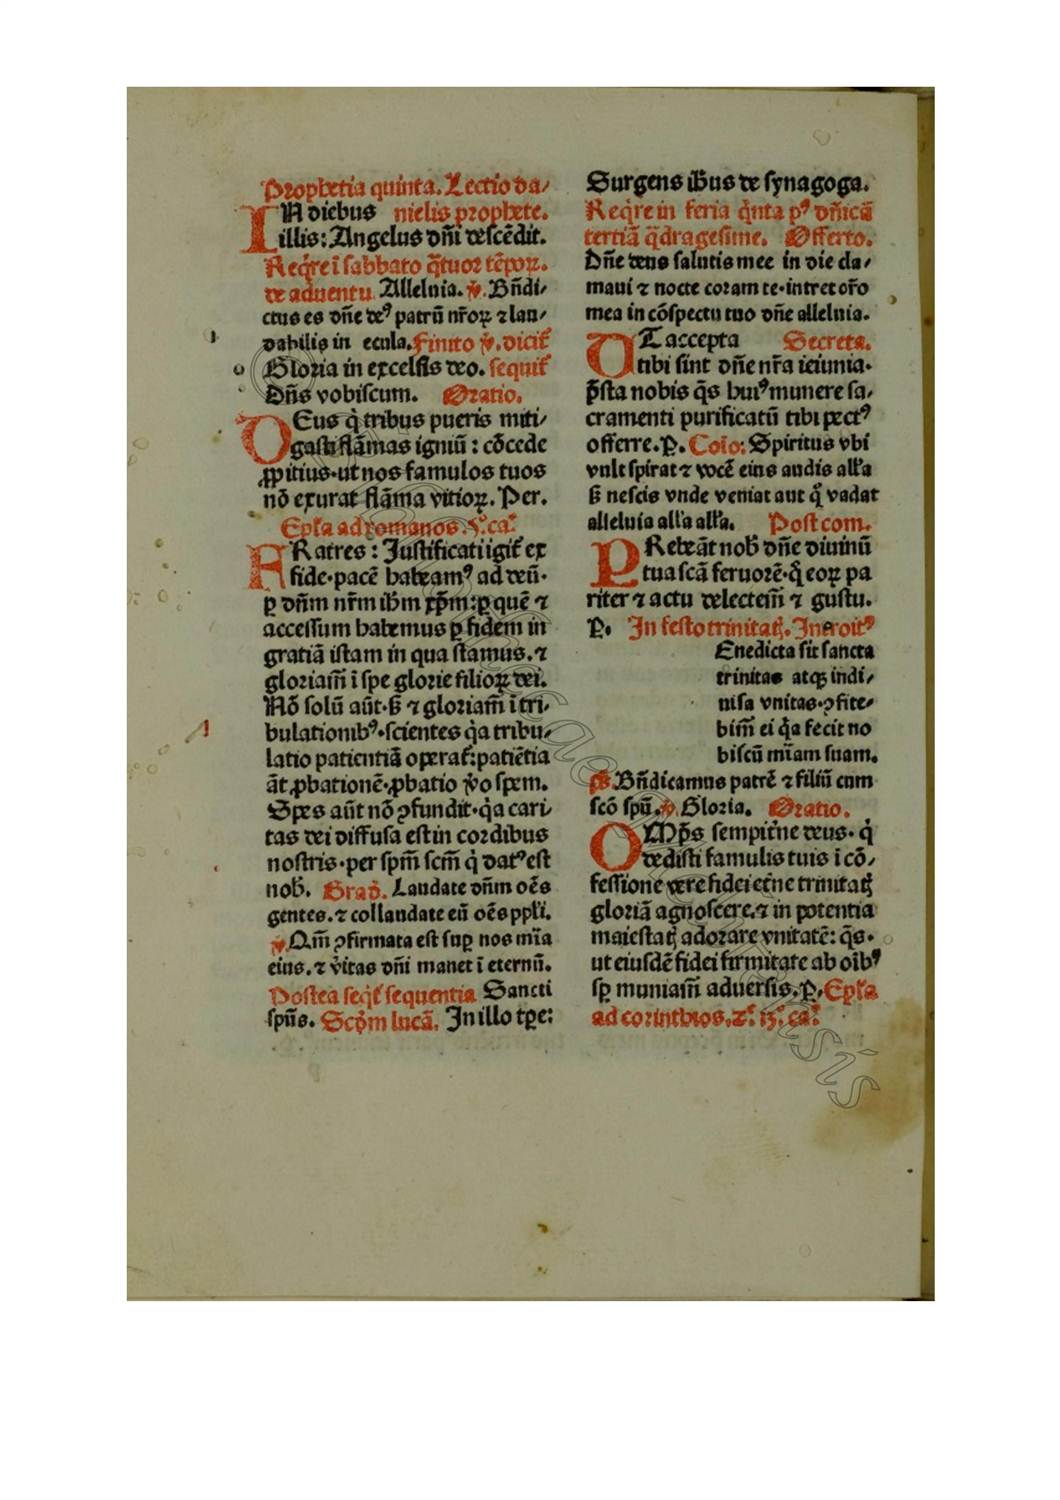 Prophetia quinta. Lectio da/
IN diebus nielis prophete.
illis: Angelus dñi descẽdit.
Reqͥre ĩ sabbato q̃tuor tẽpoꝝ.
de aduentu. Alleluia. ꝟ. Bñdi/
ctus es dñe deꝰ patrũ nr̃oꝝ ⁊ lau/
dabilis in ecula. Finito ꝟ. dicit᷑
Gloria in excelsis deo. sequit᷑
Dñs vobiscum. Oratio.
DEus qͥ tribus pueris miti/
gasti flãmas igniũ : cõcede
ꝓpitius·ut nos famulos tuos
nõ exurat flãma vitioꝝ. Per.
Epl̃a ad romanos. v.ͦ ca.ͦ
FRatres : Justificati igit᷑ ex
fide·pacẽ habeamꝰ ad deũ·
ꝑ dñm nr̃m ihm̃ xp̃m: ꝑ quẽ ⁊
accessum habemus ꝑ fidem in
gratiã istam in qua stamus. ⁊
gloriam̃ ĩ spe glorie filioꝝ dei.
Nõ solũ aũt·sꝫ ⁊ gloriam̃ ĩ tri/
bulationibꝰ·scientes qͣ tribu/
latio patientiã operat᷑: patiẽtia
ãt ꝓbationẽ·ꝓbatio ꝟo spem.
Spes aũt nõ ꝯfundit·qͣ cari/
tas dei diffusa est in cordibus
nostris·per spm̃ scm̃ qͥ datꝰ est
nob̾. Grad̾. Laudate dñm oẽs
gentes. ⁊ collaudate eũ oẽs ppl̃i.
ꝟ. Qm̃ ꝯfirmata est suꝑ nos mĩa
eius. ⁊ ꝟitas dñi manet ĩ eternũ.
Postea seqͥt᷑ sequentia Sancti
spũs. Scďm lucã. In illo tꝑe:
Surgens ihũs de synagoga.
Reqͥre in feria qͥnta pꝰ dñicã
tertiã q̃dragesime. Offerto.
Dñe deus salutis mee in die cla/
maui ⁊ nocte coram te·intret or̃o
mea in cõspectu tuo dñe alleluia.
UT accepta Secreta.
tibi sint dñe nr̃a ieiunia·
p̃sta nobis q̃s huiꝰ munere sa/
cramenti purificatũ tibi pectꝰ
offerre. P̱. Coĩo: Spiritus vbi
vult spirat ⁊ vocẽ eius audis all̃a
sꝫ nescis vnde veniat aut qͦ vadat
alleluia all̃a all̃a. Post com.
PRebeãt nob̾ dñe diuinũ
tua scã feruorẽ·qͦ eoꝝ pa
riter ⁊ actu delectem̃ ⁊ gustu.
P̱. In festo trinitatꝭ. Introitꝰ
Enedicta sit sancta
trinitas atqꝫ indi/
uisa vnitas·ꝯfite/
bim̃ ei qͣ fecit no
biscũ mĩam suam.
ps̃. Bñdicamus patrẽ ⁊ filiũ cum
scõ spũ. ꝟ. Gloria. Oratio.
OMp̃s sempit̾ne deus· qͥ
dedisti famulis tuis ĩ cõ/
fessione vere fidei et̾ne trinitatꝭ
gloriã agnoscere. ⁊ in potentia
maiestatꝭ adorare vnitatẽ: q̃s·
ut eiusdẽ fidei firmitate ab oĩbꝰ
sꝑ muniam̃ aduersis. P̱. Epl̃a
ad corinthios. 2.ͦ 13.ͦ ca.ͦ